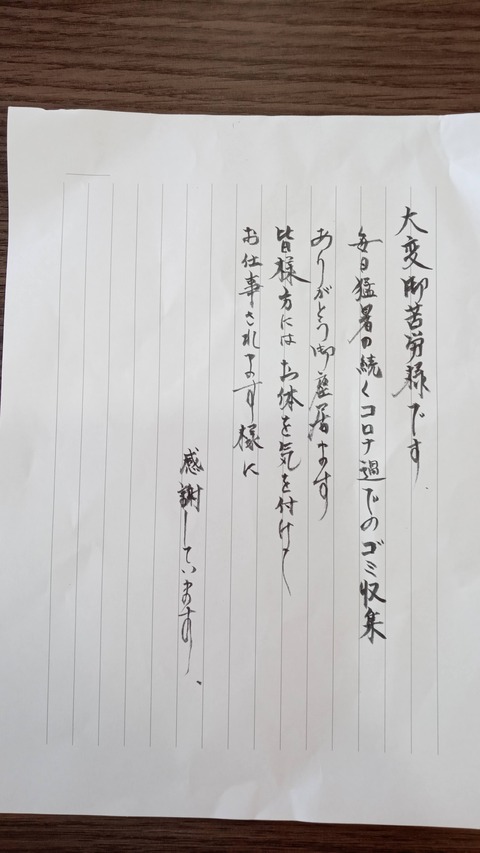 大変御苦労様です
毎日猛暑の続くコロナ過でのゴミ収集
ありがとう御座居ます
皆様方にはお体を気を付けて
お仕事されます様に
感謝しています、